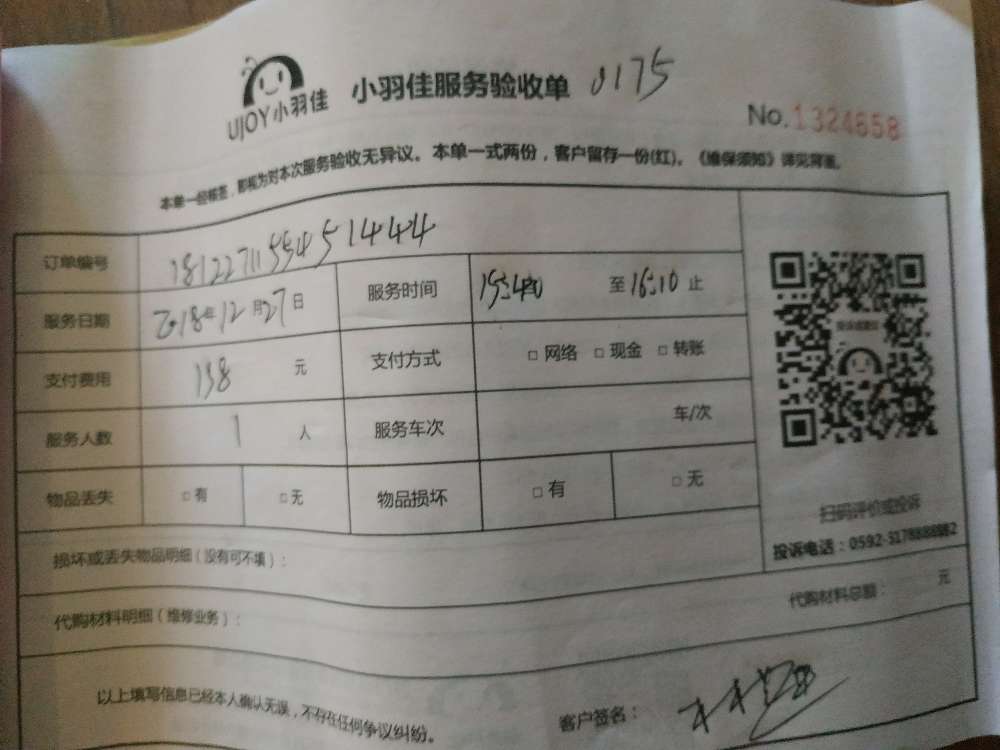 UJOY小羽佳
小羽佳服务验收单 0175
No.1324658
本单一经核签，即视为对本次服务验收无异议。本单一式两份，客户留存一份(红)。《维保须知》详见背面。
订单编号 1812271155451444
服务日期 2018年12月27日 服务时间 15:40 至16:10止
支付费用 138 元 支付方式 □ 网络 □ 现金 □ 转账
服务人数 1 人 服务车次 车/次
物品丢失 □ 有 □ 无 物品损坏 □ 有 □ 无
扫码评价或投诉
投诉电话：0592-3178888
损坏或丢失物品明细（没有可不填）：
代购材料明细（维修业务）： 代购材料总额： 元
以上填写信息已经本人确认无误，不存在任何争议纠纷。 客户签名：